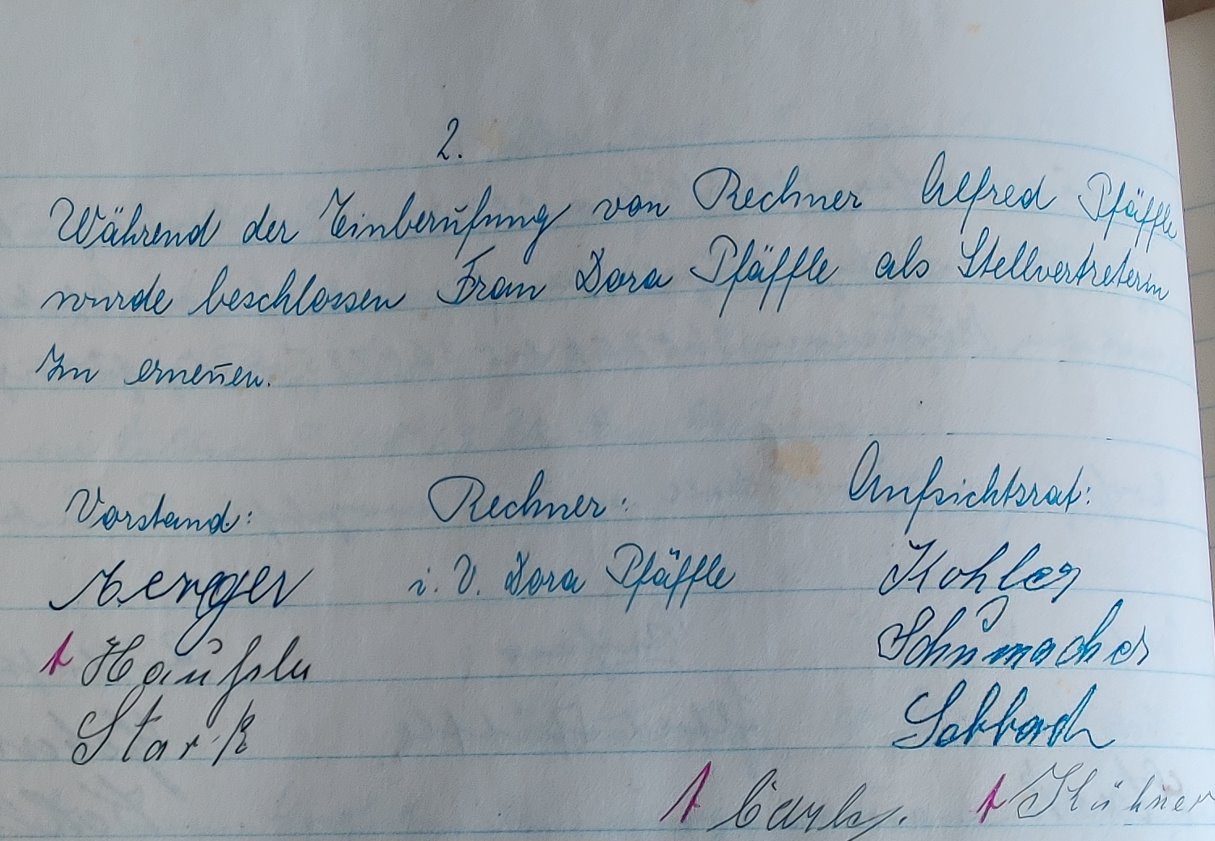 2.
Während der Einberufung von Rechner Alfred Pfäffle
wurde beschlossen Frau Dora Pfäffle als Stellvertreterin
zu ernenen.
Vorstand: Rechner: Aufsichtsrat:
i. V. Dora Pfäffle Kohler
Schumacher
Stark